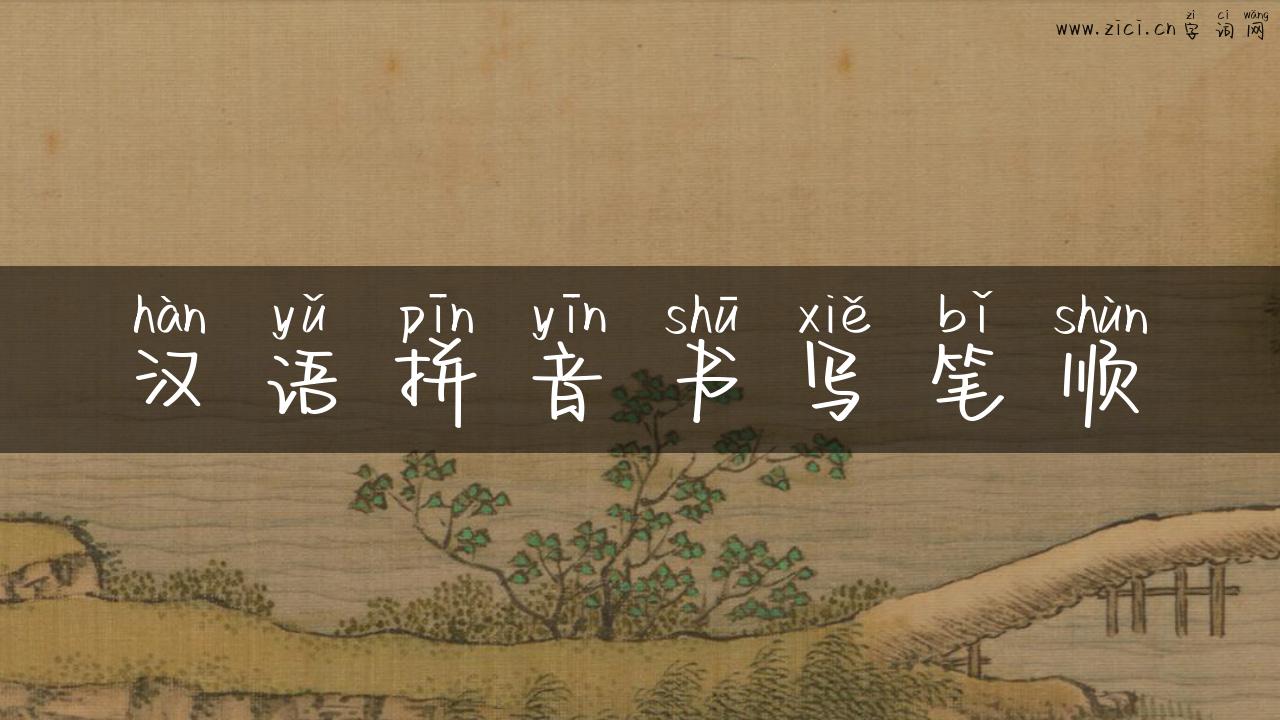 zì cí wǎng
www.zici.cn 字词网
hàn yǔ pīn yīn shū xiě bǐ shùn
汉语拼音书写笔顺